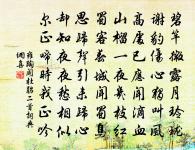 碧竿微露月玲瓏
謝豹傷心獨叫風
高處已應聞滴血
山榴一夜幾枝紅
蜀客春城聞蜀鳥
思歸聲引未歸心
却知夜夜愁相似
尔正啼時我正吟
雍陶聞杜鵑二首詞典
網喜